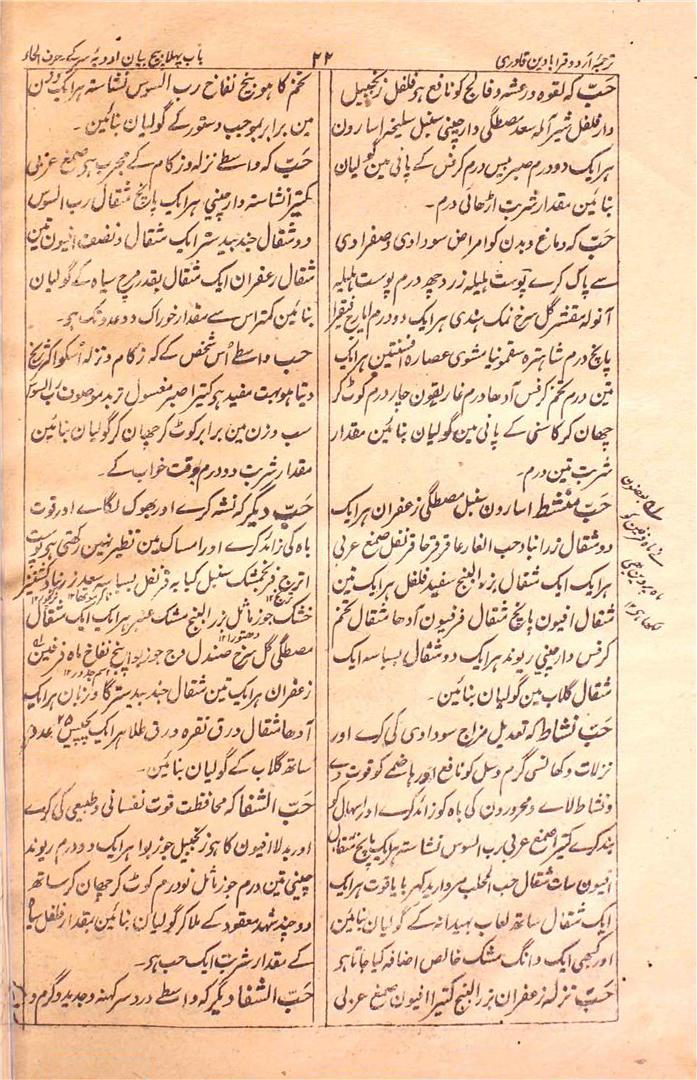 ترجمۂ اردو قرابادین قادری
۲۲
باب پہلا بیچ بیان ادویہ سر کے حرف الحاء
حَبّ کہ لقوہ و رعشہ و فالج کو نافع ہو فلفل زنجبیل
دار فلفل شیر آملہ سعد مصطگی دارچینی سنبل سلیخہ اسارون
ہر ایک دو درم صبر بیس درم کرفس کے پانی مین گولیان
بنائین مقدار شربت اڑھائی درم۔
حَبّ کہ دماغ و بدن کو امراض سوداوی و صفراوی
سے پاک کرے پوست ہلیلہ زرد چھ درم پوست بلیلہ
آنولہ مقشر گل سرخ نمک ہندی ہر ایک دو درم ایارج فیقرا
پانچ درم شاہترہ سقمونیا مشوی عصارہ افسنتین ہر ایک
تین درم تخم کرفس آدھا درم غاریقون چار درم کوٹ کر
چھان کر کاسنی کے پانی مین گولیان بنائین مقدار
شربت تین درم۔
حَبّ منشط اسارون سنبل مصطگی زعفران ہر ایک
دو شقال زرانباد حب الغار عاقرقرحا قرنفل صمغ عربی
ہر ایک ایک شقال بزر البنج سفید فلفل ہر ایک تین
شقال افیون پانچ شقال فرفیون آدھا شقال تخم
کرفس دارچینی ریوند ہر ایک دو شقال بسباسہ ایک
شقال گلاب مین گولیان بنائین۔
حَبّ نشاط کہ تعدیل مزاج سوداوی کی کرے اور
نزلات و کھانسی گرم و سل کو نافع اور ہاضمے کو قوت دے
و نشاط لاے و محرورون کی باہ کو زائد کرے اور اسہال کو
بند کرے کتیرا صمغ عربی رب السوس نشاستہ ہر ایک پانچ شقال
افیون سات شقال حب المحلب مروارید کہربا یاقوت ہر ایک
ایک شقال ساتھ لعاب بہیدانہ کے گولیان بنائین
اور کبھی ایک دانگ مشک خالص اضافہ کیا جاتا ہو
حَبّ نزلہ زعفران بزر البنج کتیرا افیون صمغ عربی
تخم کاہو بیخ نفاخ رب السوس نشاستہ ہر ایک وزن
مین برابر بموجب دستور کے گولیان بنائین۔
حَبّ کہ واسطے نزلہ و زکام کے مجرب ہو صمغ عربی
کتیرا نشاستہ دارچینی ہر ایک پانچ شقال رب السوس
دو شقال جندبیدستر ایک شقال و نصف افیون تین
شقال زعفران ایک شقال بقدر مرچ سیاہ کے گولیان
بنائین کمتر اس سے مقدار خوراک دو عدد تک ہو۔
حب واسطے اُس شخص کے کہ زکام و نزلہ اُسکو اکثر رنج
دیتا ہو بہت مفید ہو کتیرا صبر مغسول تربد موصوف رب السوس
سب وزن مین برابر کوٹ کر چھان کر گولیان بنائین
مقدار شربت دو درم بوقت خواب کے۔
حَبّ دیگر کہ نشہ کرے اور بھوک لگاے اور قوت
باہ کی زائد کرے اور امساک مین نظیر نہین رکھتی ہو پوست
اترج فرنجمشک سنبل کبابہ قرنفل بسباسہ سعد زرنباد کشنیز
خشک جوز ماثل بزر البنج مشک عنبر ہر ایک ایک شقال
دھتورا ۱۲
مصطگی گل سرخ صندل وج جوز بوا بیخ نفاخ ماہ فرفین
زعفران ہر ایک تین شقال جندبیدستر گاوزبان ہر ایک
آدھا شقال ورق نقرہ ورق طلا ہر ایک پچیس ۲۵ عدد
ساتھ گلاب کے گولیان بنائین۔
حَبّ الشفا کہ محافظت قوت نفسانی و طبیعی کی کرے
اور بدلا افیون کا ہو زنجبیل جوز بوا ہر ایک دو درم ریوند
چینی تین درم جوز ماثل نو درم کوٹ کر چھان کر ساتھ
دو چند شہد معقود کے ملا کر گولیان بنائین بقدار فلفل سیاہ
کے مقدار شربت ایک حب ہو۔
حَبّ الشفا دیگر کہ واسطے درد سر کہنہ و جدید و گرم و